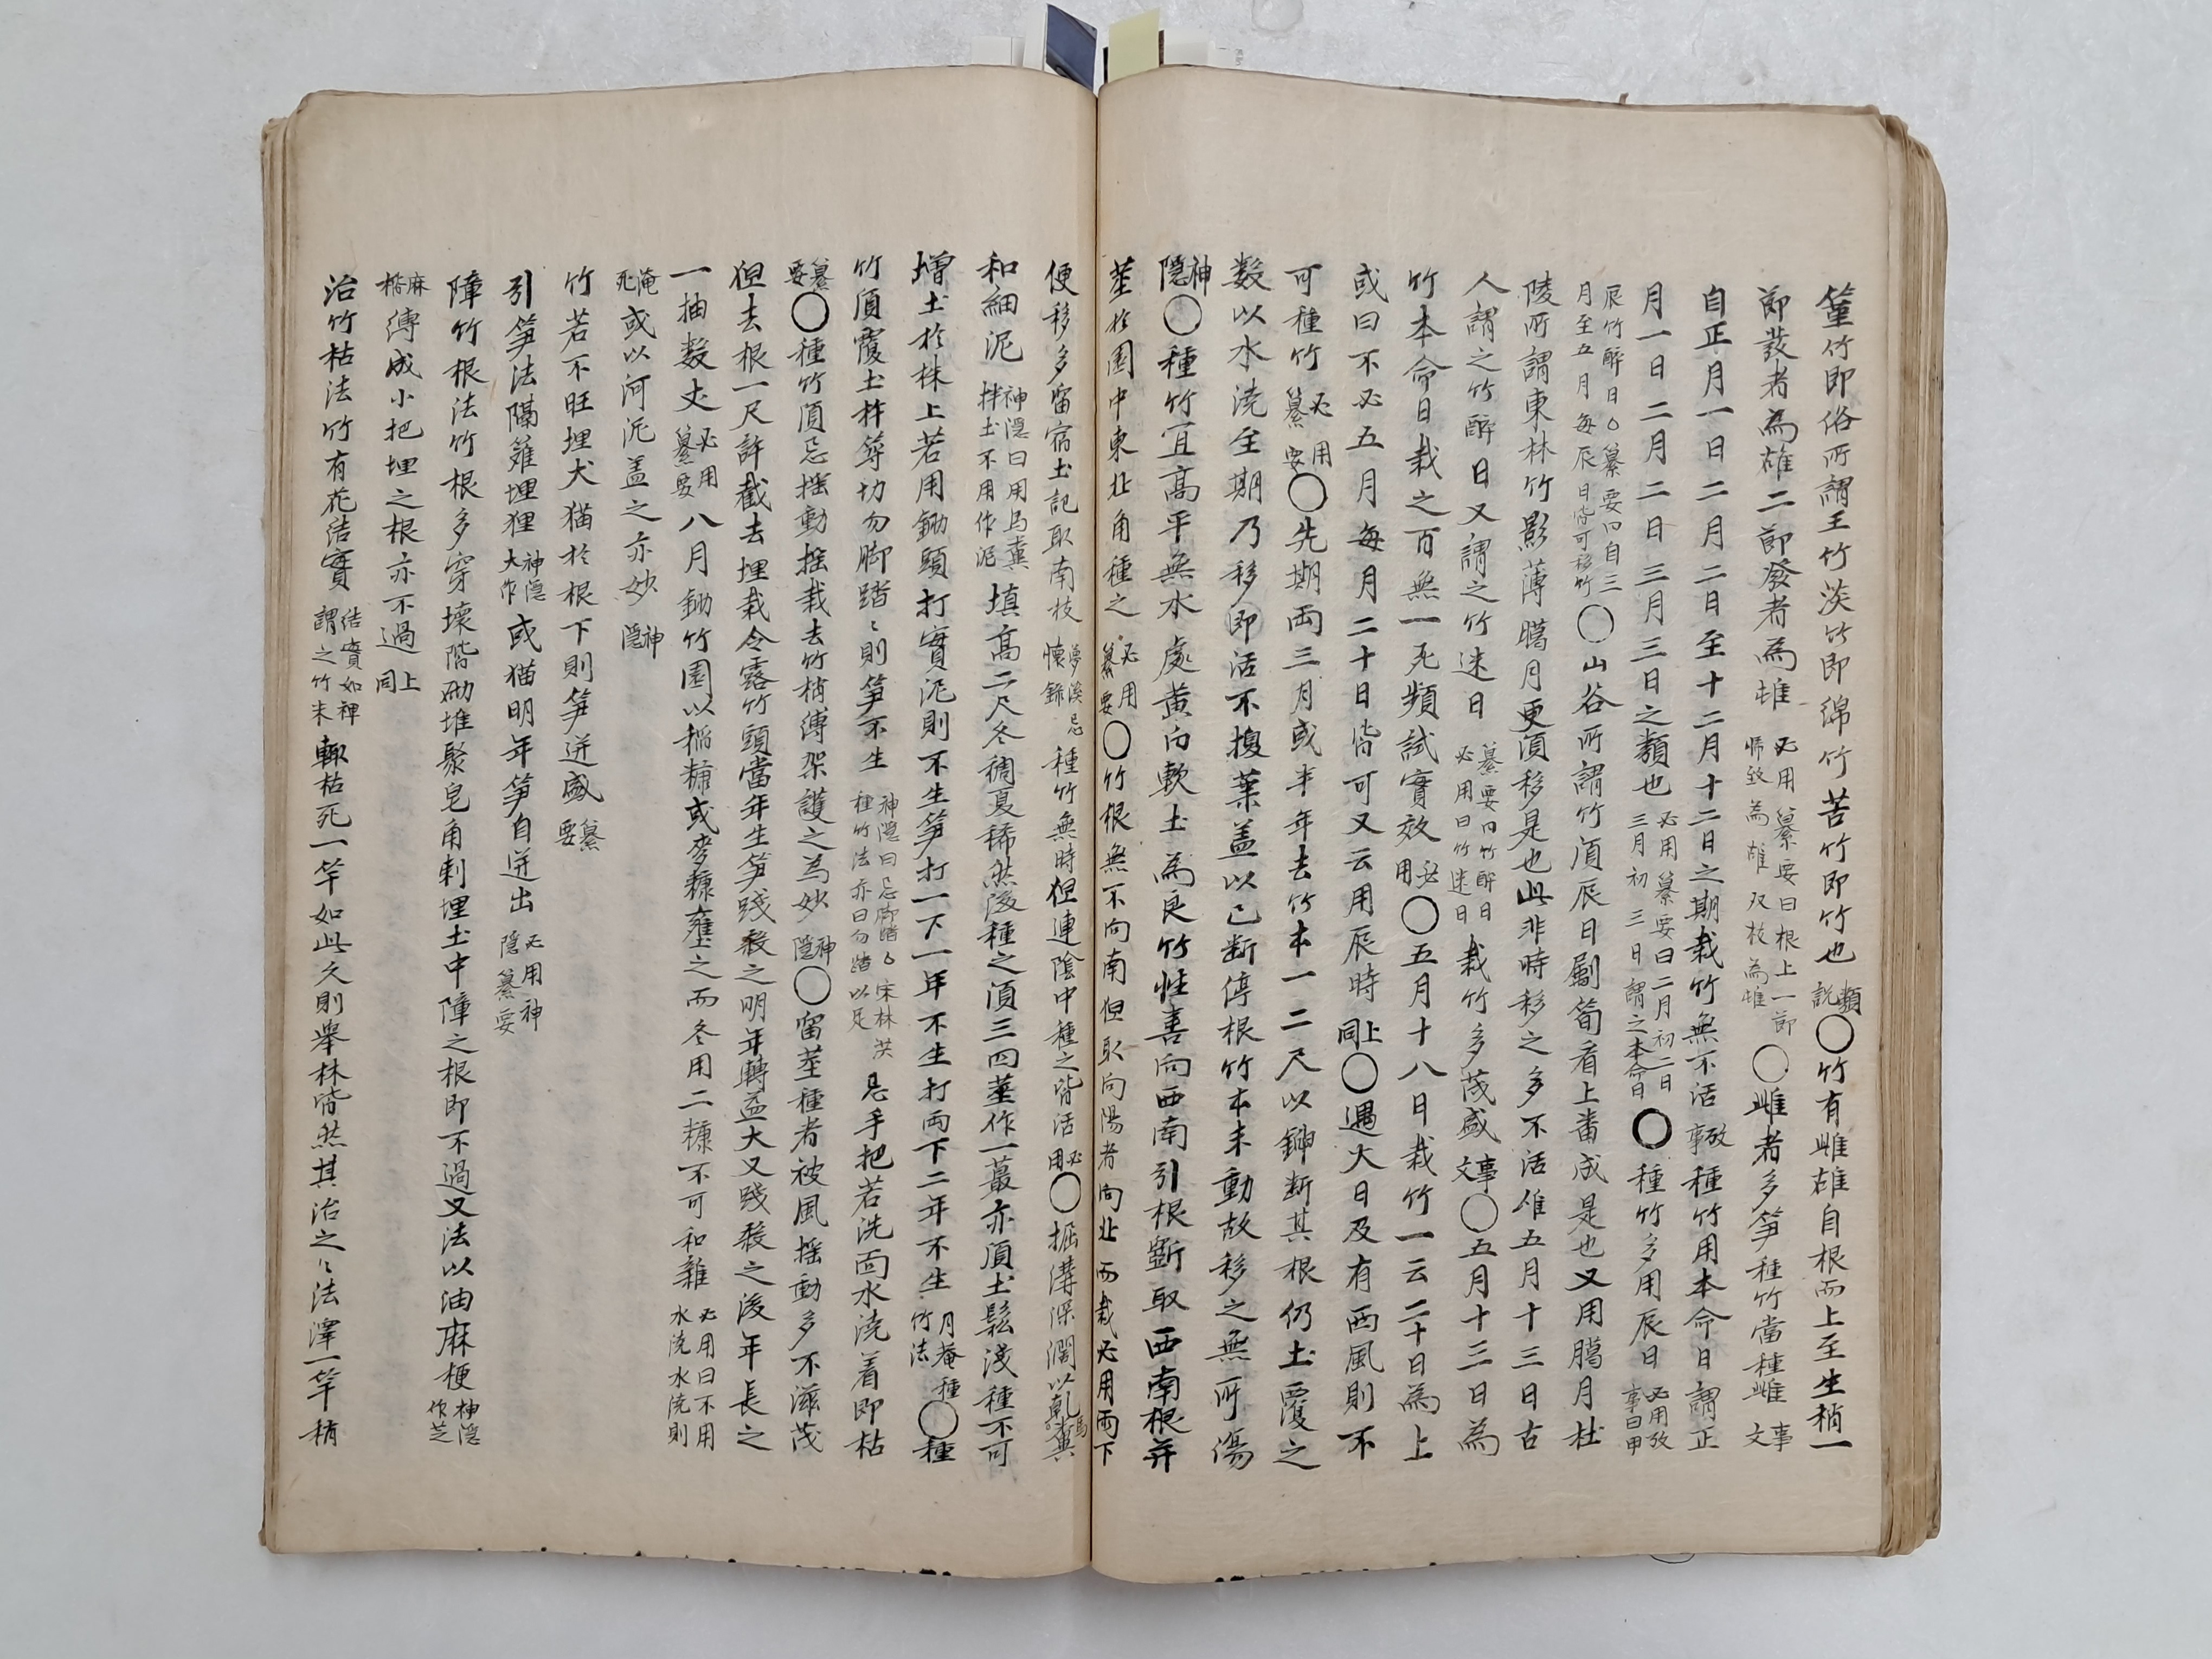 篁竹即俗所謂王竹淡竹即綿竹苦竹即竹也類說○竹有雌雄自根而上至生稍一
節發者為雄二節發者為雌必用纂要曰根上一節㡀致為雄双枝為雌○雌者多笋種竹當種雌事文
自正月一日二月二日至十二月十二日之期栽竹無不活攷事種竹用本命日謂正
月一日二月二日三月三日之類也必用纂要曰二月初二日三月初三日謂之本命日○種竹多用辰日必用攷事曰甲
辰竹醉日○纂要曰自三月至五月每辰日皆可移竹○山谷所謂竹須辰日斸筍看上番成是也又用臈月杜
陵所謂東林竹影薄臈月更須移是也此非時移之多不活惟五月十三日古
人謂之竹醉日又謂之竹迷日纂要曰竹醉日必用曰竹迷日栽竹多茂盛事文○五月十三日為
竹本命日栽之百無一死頻試實效必用○五月十八日栽竹一云二十日為上
或曰不必五月每月二十日皆可又云用辰時上同○遇大日及有西風則不
可種竹必用纂要○先期兩三月或半年去竹本一二尺以鍬断其根仍土覆之
数以水澆至期乃移即活不換葉盖以已断停根竹本未動故移之無所傷
神隱○種竹宜高平無水處黃白軟土為良竹性善向西南引根斷取西南根并
莖於園中東北角種之必用纂要○竹根無不向南但取向陽者向北而栽必用雨下
便移多留宿土記取南枝夢溪忘懷錄種竹無時但連陰中種之皆活必用○掘溝深濶以乾馬糞
和細泥神隱曰用馬糞拌土不用作泥填高二尺冬稠夏稀然後種之須三四莖作一叢亦須土鬆淺種不可
增土於株上若用鋤頭打實泥則不生笋打一下一年不生打両下二年不生月菴種竹法○種
竹須覆土杵築切勿脚踏〻則笋不生神隱曰忌脚踏○宋林洪種竹法亦曰勿踏以足忌手把若洗面水澆着即枯
纂要○種竹須忌搖動搖栽去竹梢縛架護之為妙神隱○留莖種者被風搖動多不滋茂
但去根一尺許截去埋栽令露竹頭當年生笋踐殺之明年轉益大又踐殺之後年長之
一抽数丈必用纂要八月鋤竹園以稻糠或麥糠壅之而冬用二糠不可和雜必用曰不用水澆水澆則
淹死或以河泥盖之亦妙神隱
竹若不旺埋犬猫於根下則笋迸盛纂要
引笋法隔籬埋狸神隱作犬或猫明年笋自迸出必用神隱纂要
障竹根法竹根多穿壞階砌堆聚皂角刺埋土中障之根即不過又法以油麻梗神隱作芝
麻楷縛成小把埋之根亦不過上同
治竹枯法竹有花結實結實如稗謂之竹米輒枯死一竿如此久則舉林皆然其治之〻法擇一竿稍